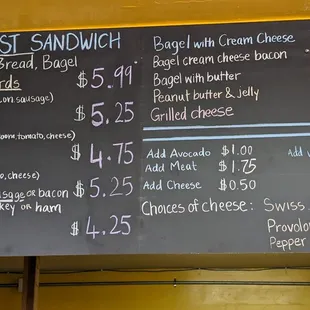 ST SANDWICH
Bread, Bagel
rds
on, sausage)
$5.99
$5.25
tomato, cheese)
$4.75
o, cheese)
sage OR bacon
$5.25
key or ham
$4.25
Bagel with Cream Cheese
Bagel cream cheese bacon
Bagel with butter
Peanut butter & jelly
Grilled cheese
Add Avocado $1.00
Add Meat $1.75
Add Cheese $0.50
Add
Choices of cheese: Swiss
Provolo
Pepper